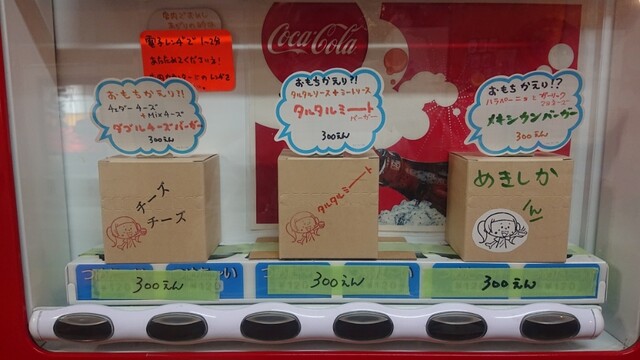 電子レンジで1~2分
あたためてくださいネ!
Coca-Cola
おもちかえり?!
チェダーチーズ
+Mixチーズ
ダブルチーズバーガー
300えん
おもちかえり?!
タルタルソース+ミートソース
タルタルミート
バーガー
300えん
おもちかえり!?
ハラペーニョと
メキシカンバーガー
300えん
チーズ
チーズ
タルタルミート
めきしか
ん
300えん
300えん
300えん